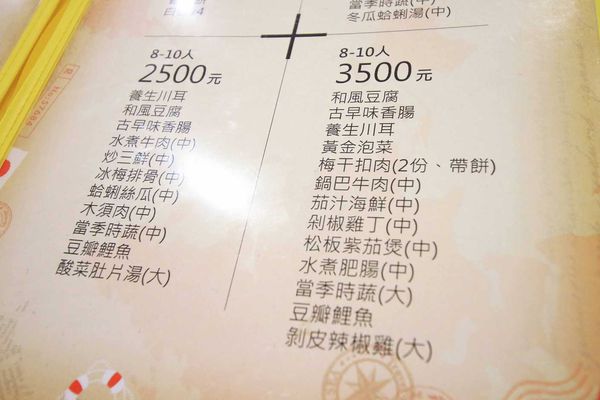 當季時蔬(中)
冬瓜蛤蜊湯(中)
8-10人
2500元
養生川耳
和風豆腐
古早味香腸
水煮牛肉(中)
炒三鮮(中)
冰梅排骨(中)
蛤蜊絲瓜(中)
木須肉(中)
當季時蔬(中)
豆瓣鯉魚
酸菜肚片湯(大)
8-10人
3500元
和風豆腐
古早味香腸
養生川耳
黃金泡菜
梅干扣肉(2份、帶餅)
鍋巴牛肉(中)
茄汁海鮮(中)
剁椒雞丁(中)
松板紫茄煲(中)
水煮肥腸(中)
當季時蔬(大)
豆瓣鯉魚
剝皮辣椒雞(大)
No.57684